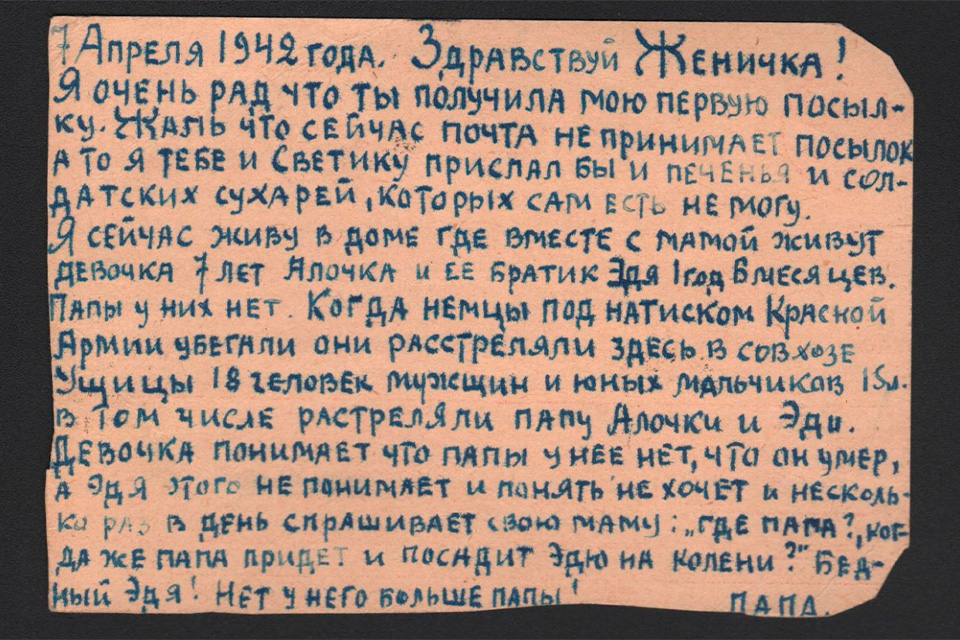 7 Апреля 1942 года. Здравствуй Женичка!
Я очень рад что ты получила мою первую посыл-
ку. Жаль что сейчас почта не принимает посылок
а то я тебе и Светику прислал бы и печенья и сол-
датских сухарей, которых сам есть не могу.
Я сейчас живу в доме где вместе с мамой живут
девочка 7 лет Алочка и ее братик Эдя 1 год 6 месяцев.
Папы у них нет. Когда немцы под натиском Красной
Армии убегали они расстреляли здесь в совхозе
Ущицы 18 человек мужщин и юных мальчиков 15 л.
в том числе растреляли папу Алочки и Эди.
Девочка понимает что папы у нее нет, что он умер,
а Эдя этого не понимает и понять не хочет и несколь-
ко раз в день спрашивает свою маму: „где папа?, ког-
да же папа придет и посадит Эдю на колени?" Бед-
ный Эдя! Нет у него больше папы!
Папа.